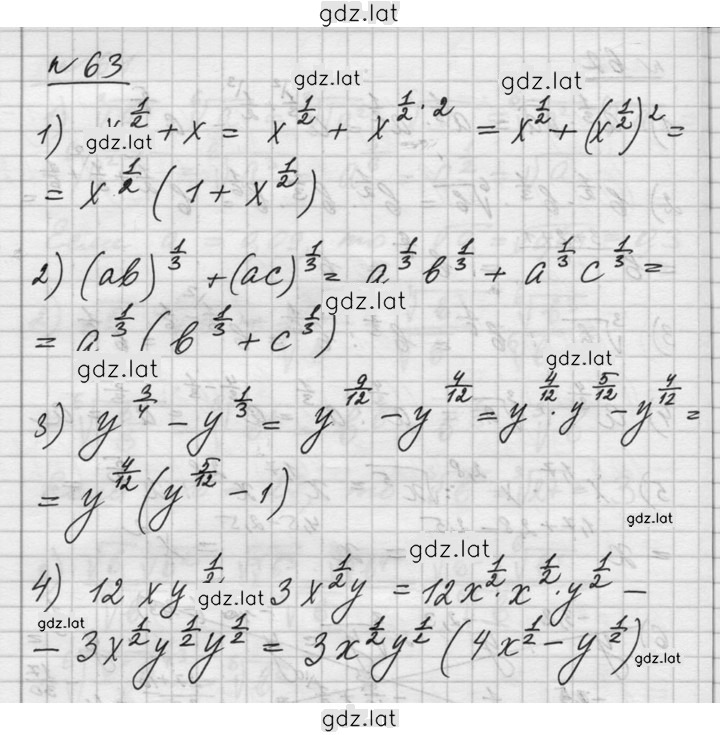 gdz.lat
№ 63
gdz.lat gdz.lat
1) x^(1/2) + x = x^(1/2) + x^(1/2 · 2) = x^(1/2) + (x^(1/2))^2 =
gdz.lat
= x^(1/2) (1 + x^(1/2))
2) (ab)^(1/3) + (ac)^(1/3) = a^(1/3) b^(1/3) + a^(1/3) c^(1/3) =
gdz.lat
= a^(1/3) (b^(1/3) + c^(1/3))
gdz.lat gdz.lat
3) y^(3/4) − y^(1/3) = y^(9/12) − y^(4/12) = y^(4/12) · y^(5/12) − y^(4/12) =
= y^(4/12) (y^(5/12) − 1)
gdz.lat
gdz.lat
4) 12 x y^(1/2) 3 x^(1/2) y = 12 x^(1/2) · x^(1/2) · y^(1/2) −
gdz.lat
gdz.lat
− 3 x^(1/2) y^(1/2) y^(1/2) = 3 x^(1/2) y^(1/2) (4 x^(1/2) − y^(1/2))
gdz.lat
gdz.lat